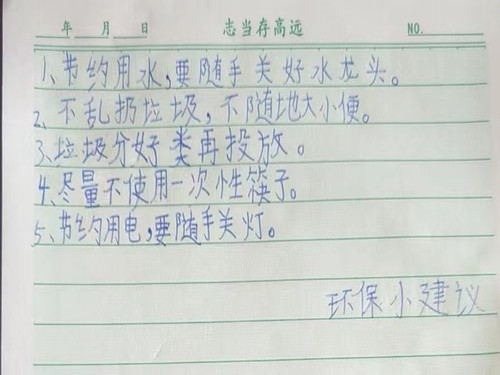 年 月 日 志当存高远 NO.
1、节约用水,要随手关好水龙头。
2、不乱扔垃圾,不随地大小便。
3、垃圾分好类再投放。
4、尽量不使用一次性筷子。
5、节约用电,要随手关灯。
环保小建议